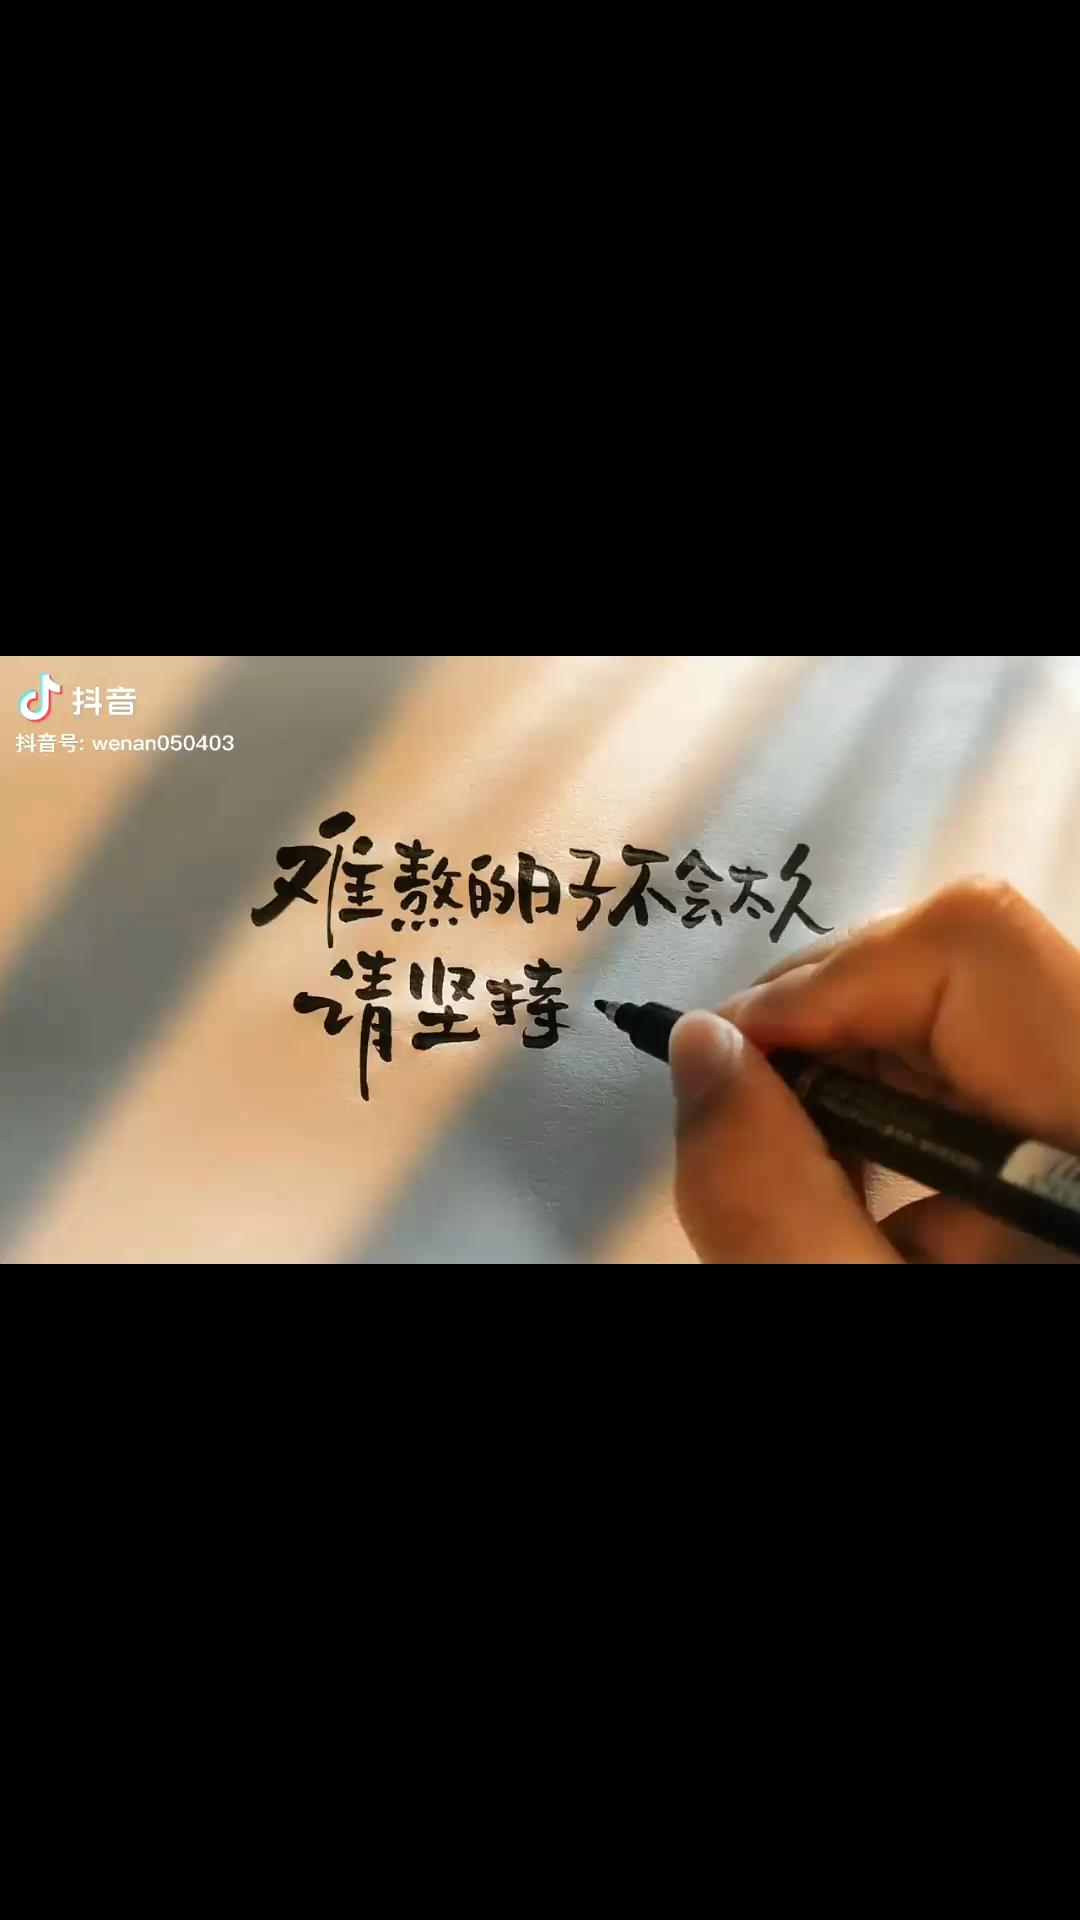 抖音
抖音号: wenan050403
难熬的日子不会太久
请坚持